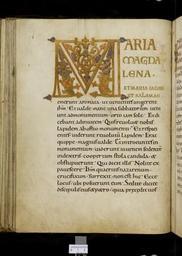 MARIA
MAGDA
LENA.
ET MARIA IACOBI
ET SALOMAE
emerunt aromata. ut uenientes ungerent
ihm. Et ualde mane una sabbatorum ueni
unt ad monumentum. orto iam sole. Et di
cebant ad inuicem. Quis reuoluet nobis
lapidem ab ostio monumenti? Et respici
entes. uiderunt reuolutum lapidem. Erat
quippe magnus ualde. Et introeuntes in
monumentum. uiderunt iuuenem sedentem
in dextris coopertum stola candida. et
obstipuerunt. Qui dicit illis. Nolite ex
pauescere. Ihm queritis nazarenum
crucifixum. surrexit. non est hic. Ecce
locus ubi posuerunt eum. Sed ite dicite
discipulis eius et petro. quia precedit uos